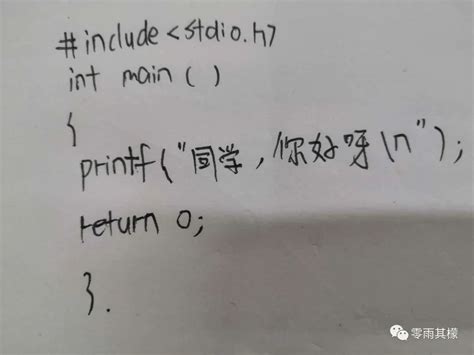 #include<stdio.h>
int main()
{
printf("同学，你好呀\n");
return 0;
}.
零雨其檬